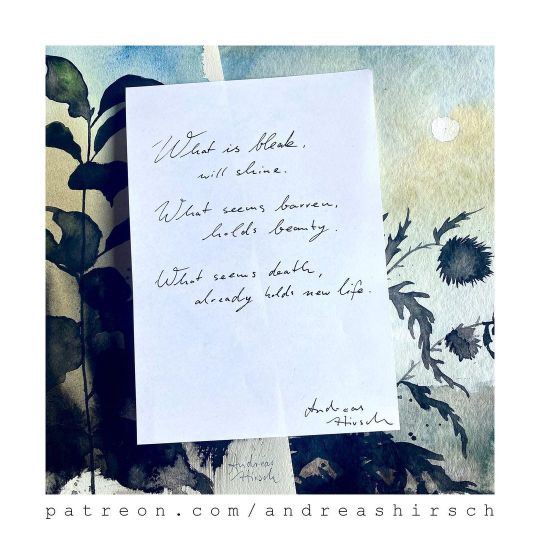 What is bleak,
will shine.
What seems barren,
holds beauty.
What seems death,
already holds new life.
Andreas
Hirsch
Andreas
Hirsch
patreon.com/andreashirsch